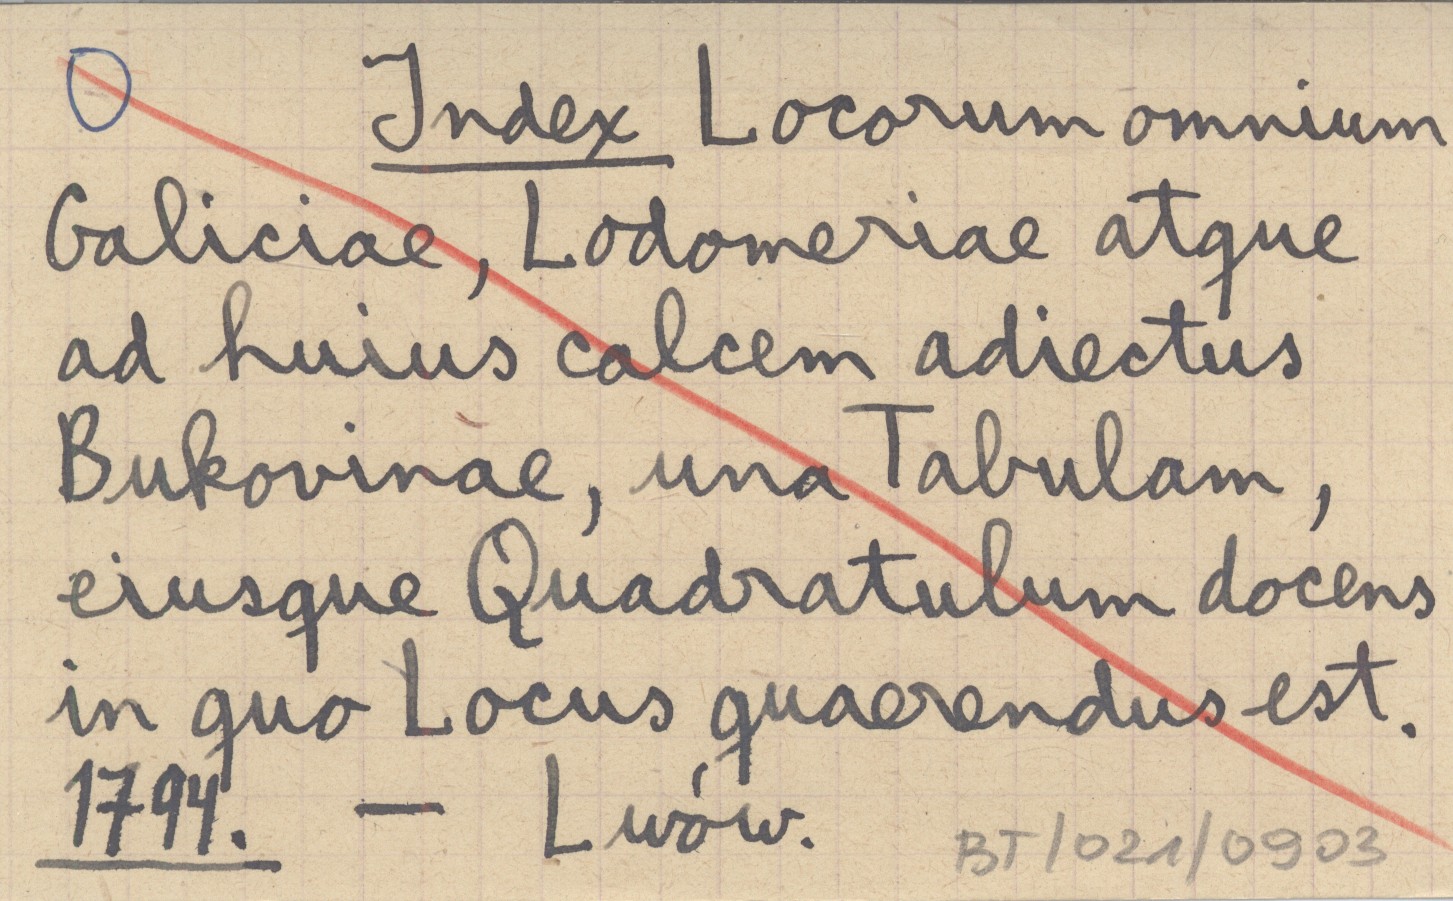 Index Locorum omnium
Galiciae, Lodomeriae atque
ad huius calcem adiectus
Bukovinae, una Tabulam,
eiusque Quadratulum docens
in quo Locus quaerendus est.
1794. — Lwów.
BT/021/0903